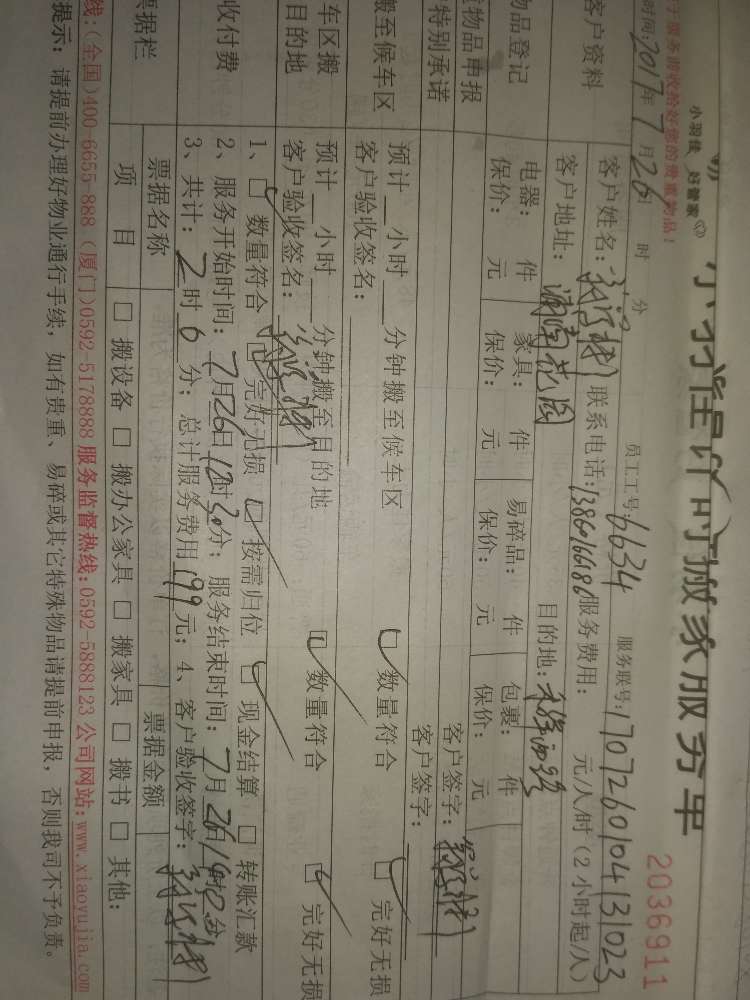 小羽佳 好管家
小羽佳计时搬家服务单
2036911
时间:2017年7月26日 时 分 员工工号:6634 服务联号:1707260104131023
客户资料
客户姓名: 联系电话:13860166186 服务费用: 元/人/时(2小时起/人)
客户地址: 花园 目的地:
物品登记
电器: 件 家具: 件 易碎品: 件 包裹: 件
保价: 元 保价: 元 保价: 元 保价: 元
物品申报 客户签字:
特别承诺 客户签字:
搬至候车区
预计 小时 分钟搬至候车区 数量符合 完好无损
客户验收签名:
车区搬
目的地
预计 小时 分钟搬至目的地 数量符合 完好无损
客户验收签名:
收付费
1、□ 数量符合 □ 完好无损 □ 按需归位 □ 现金结算 □ 转账汇款
2、服务开始时间:7月26日12时30分;服务结束时间:7月26日
3、共计:2时6分;总计服务费用199元;4、客户验收签字:
票据栏
票据名称 票据金额
项 目 □ 搬设备 □ 搬办公家具 □ 搬家具 □ 搬书 □ 其他:
线:(全国)400-6655-888 (厦门)0592-5178888 服务监督热线:0592-5888123 公司网站:www.xiaoyujia.com
提示:请提前办理好物业通行手续,如有贵重、易碎或其它特殊物品请提前申报,否则我司不予负责。